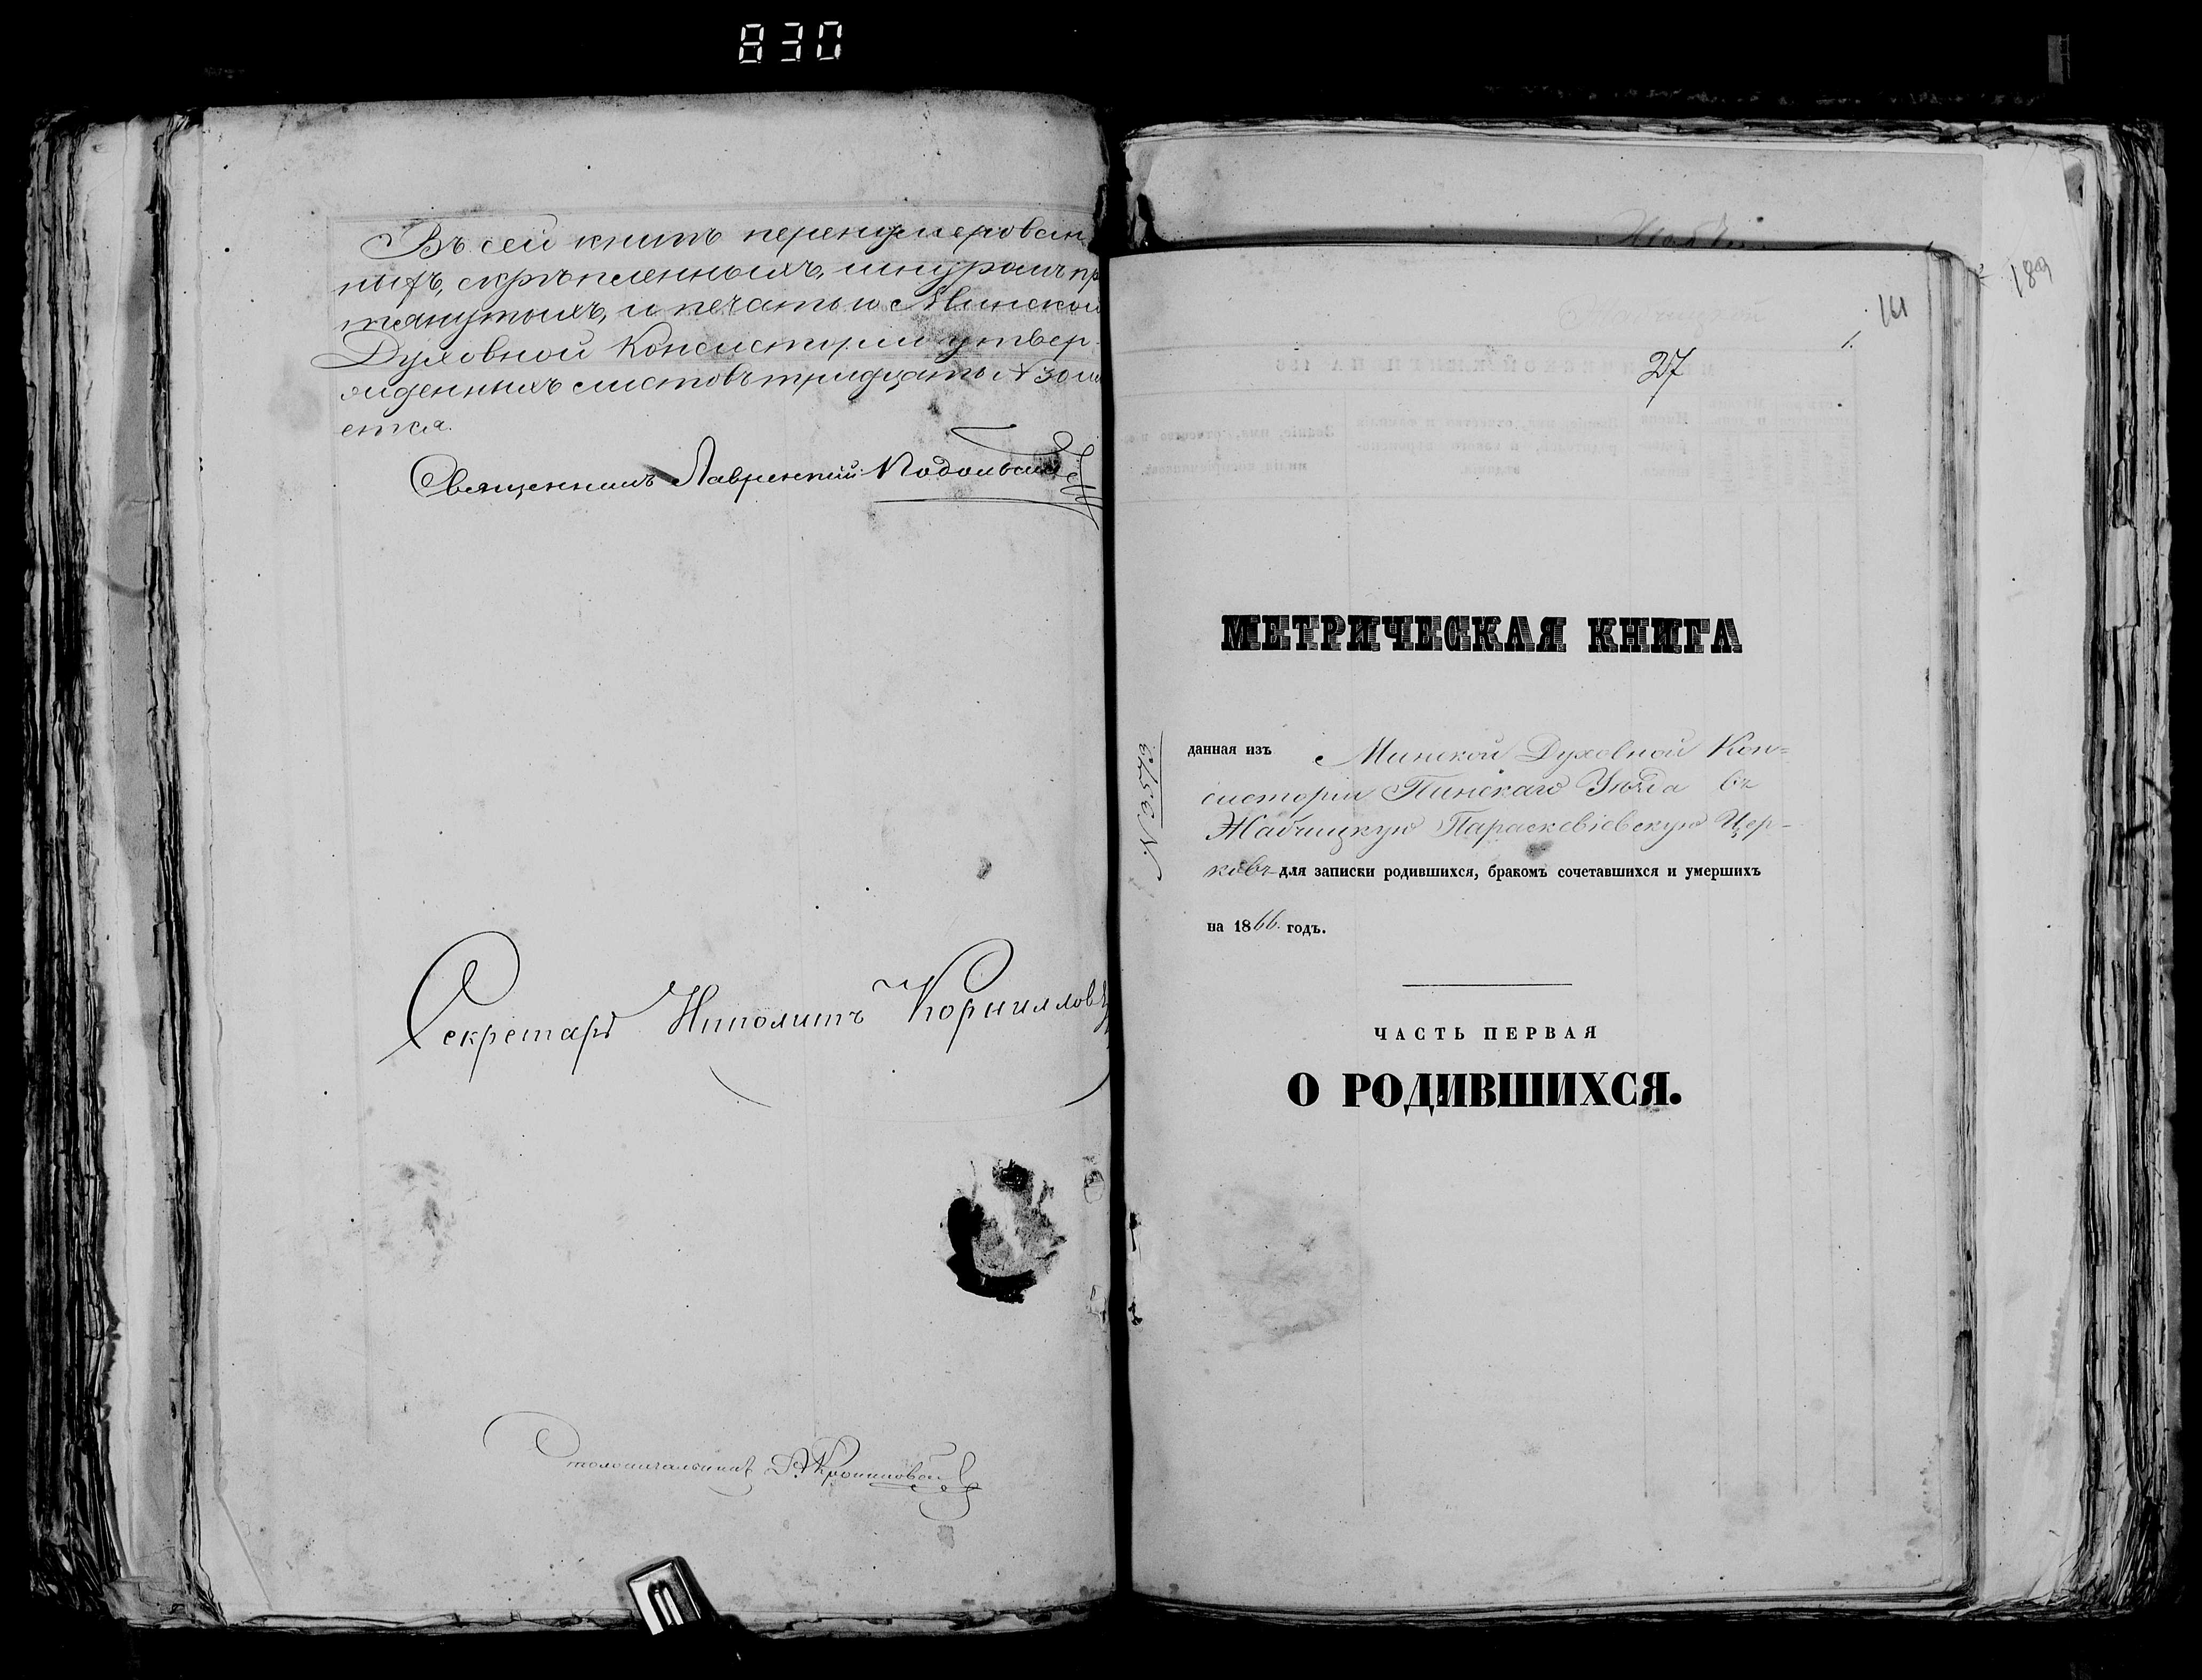 830
Въ сей книгѣ перенумерован
ныхъ, скрѣпленныхъ, шнуромъ пр
тянутыхъ, и печатью Минской
Духовной Консисторіи утвер
жденныхъ листовъ тридцать № 30
ется.
Священникъ Лаврентій
Секретарь Ипполитъ
Столоначальникъ
189
161
1.
27
МЕТРИЧЕСКАЯ КНИГА
данная изъ Минской Духовной Кон=
систоріи Пинскаго Уѣзда въ
Жабчицкую Параскевіевскую Цер-
ковь для записки родившихся, бракомъ сочетавшихся и умершихъ
на 1866. годъ.
ЧАСТЬ ПЕРВАЯ
О РОДИВШИХСЯ.